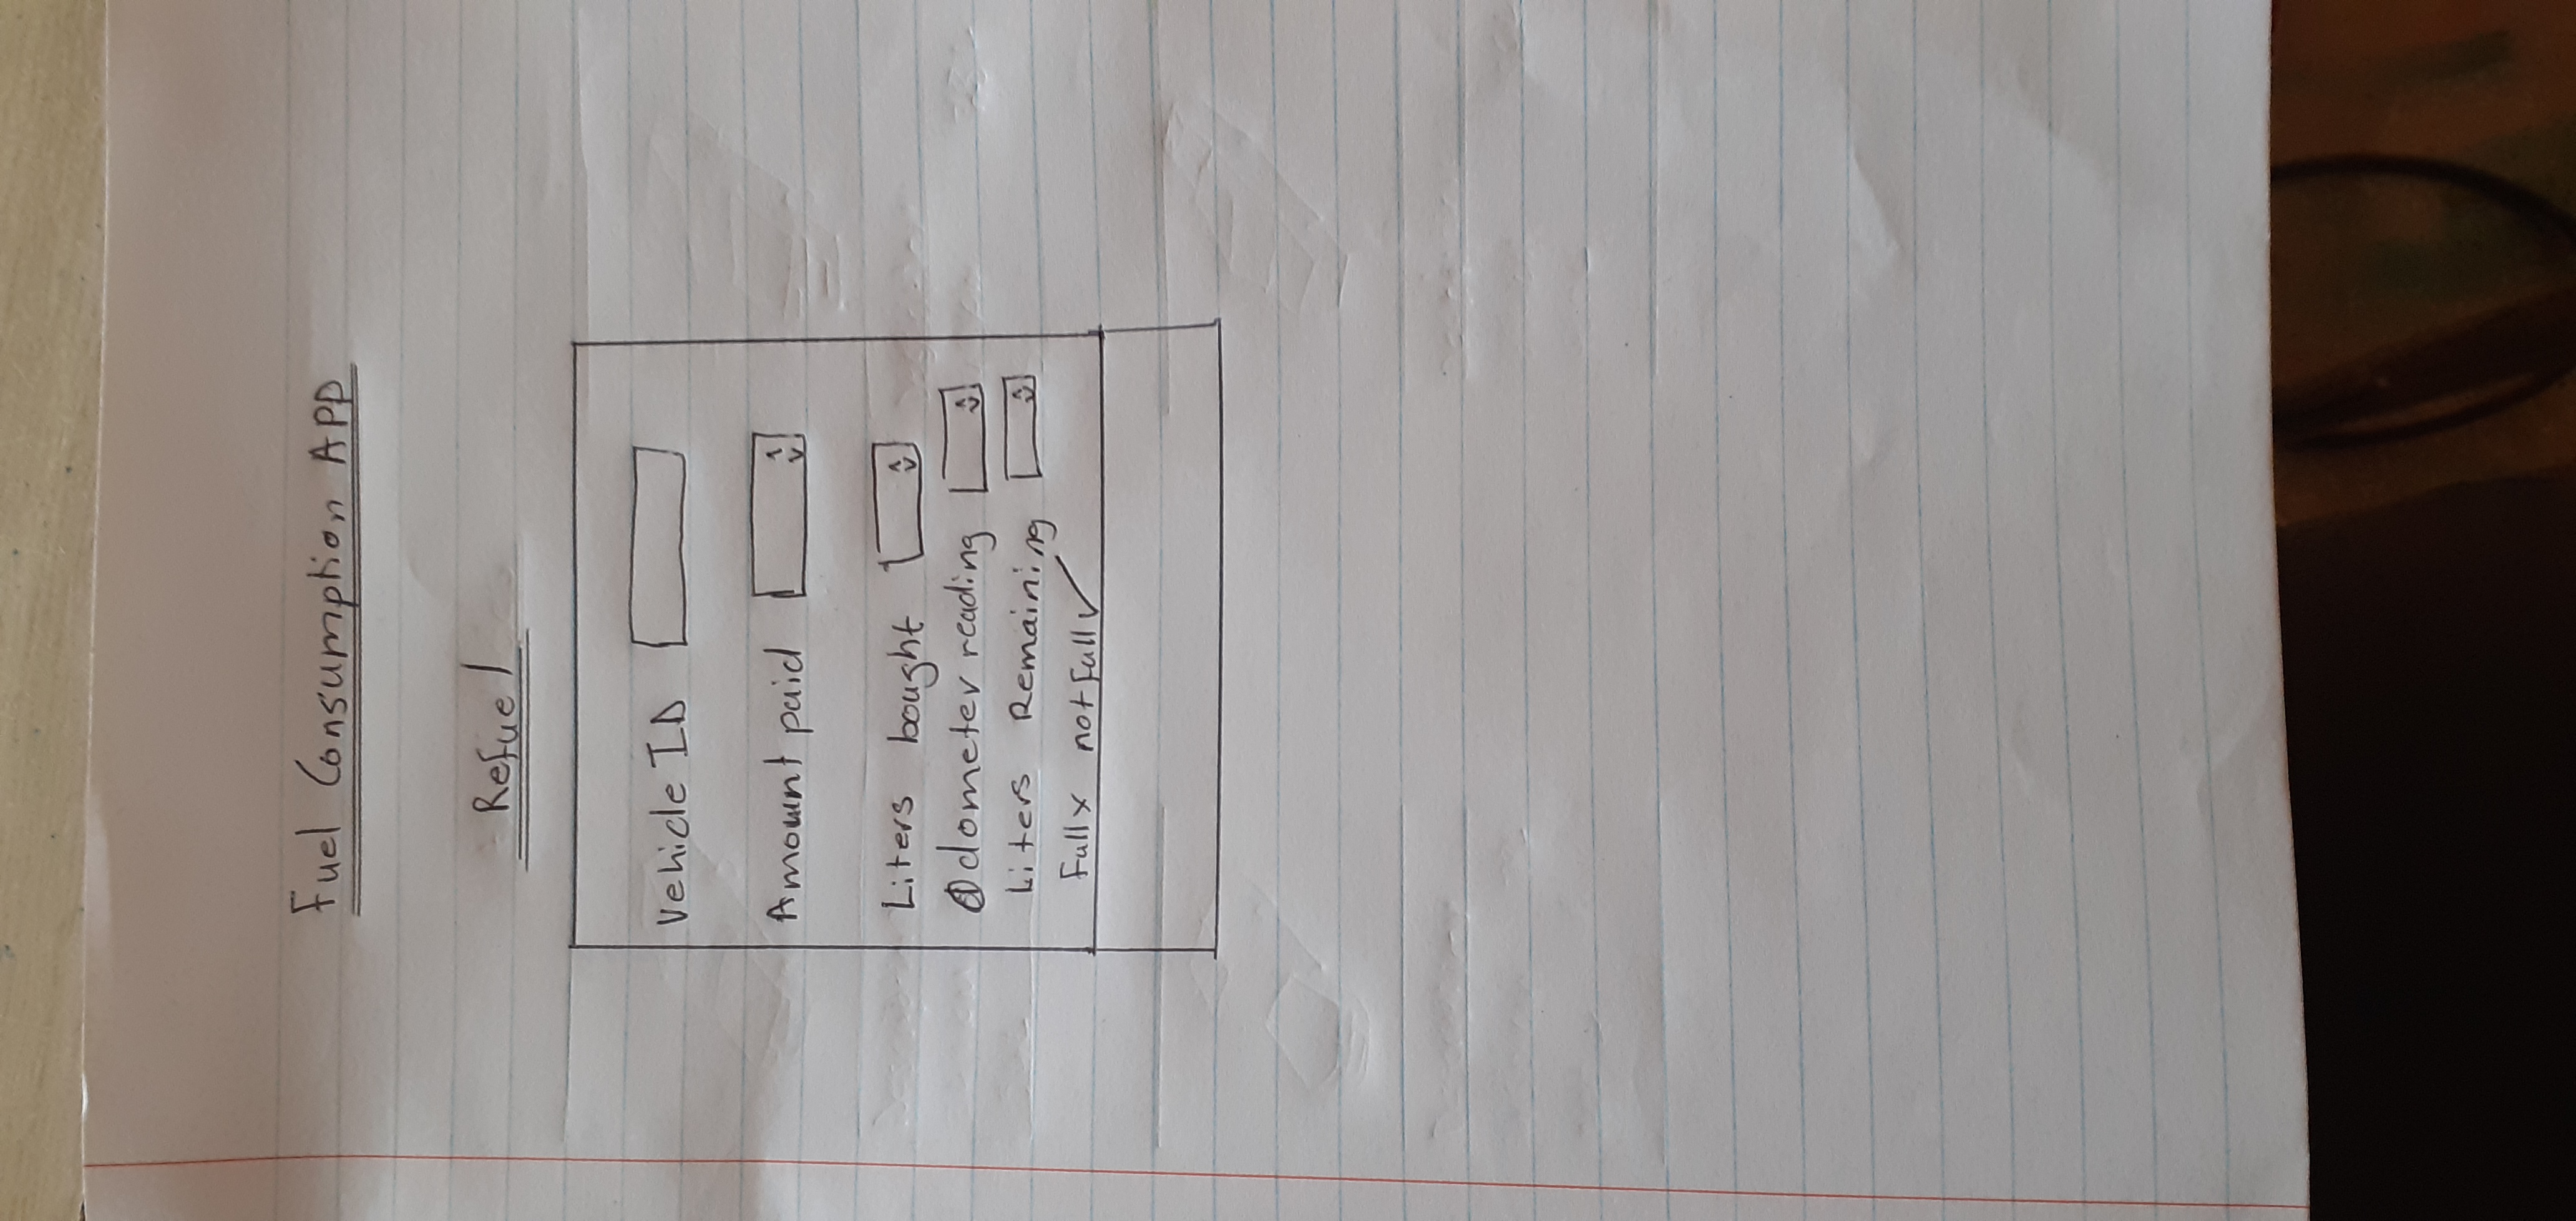 Fuel Consumption APP
Refuel
Vehicle ID
Amount paid
Liters bought
Odometer reading
Liters Remaining
Full x not full ✓